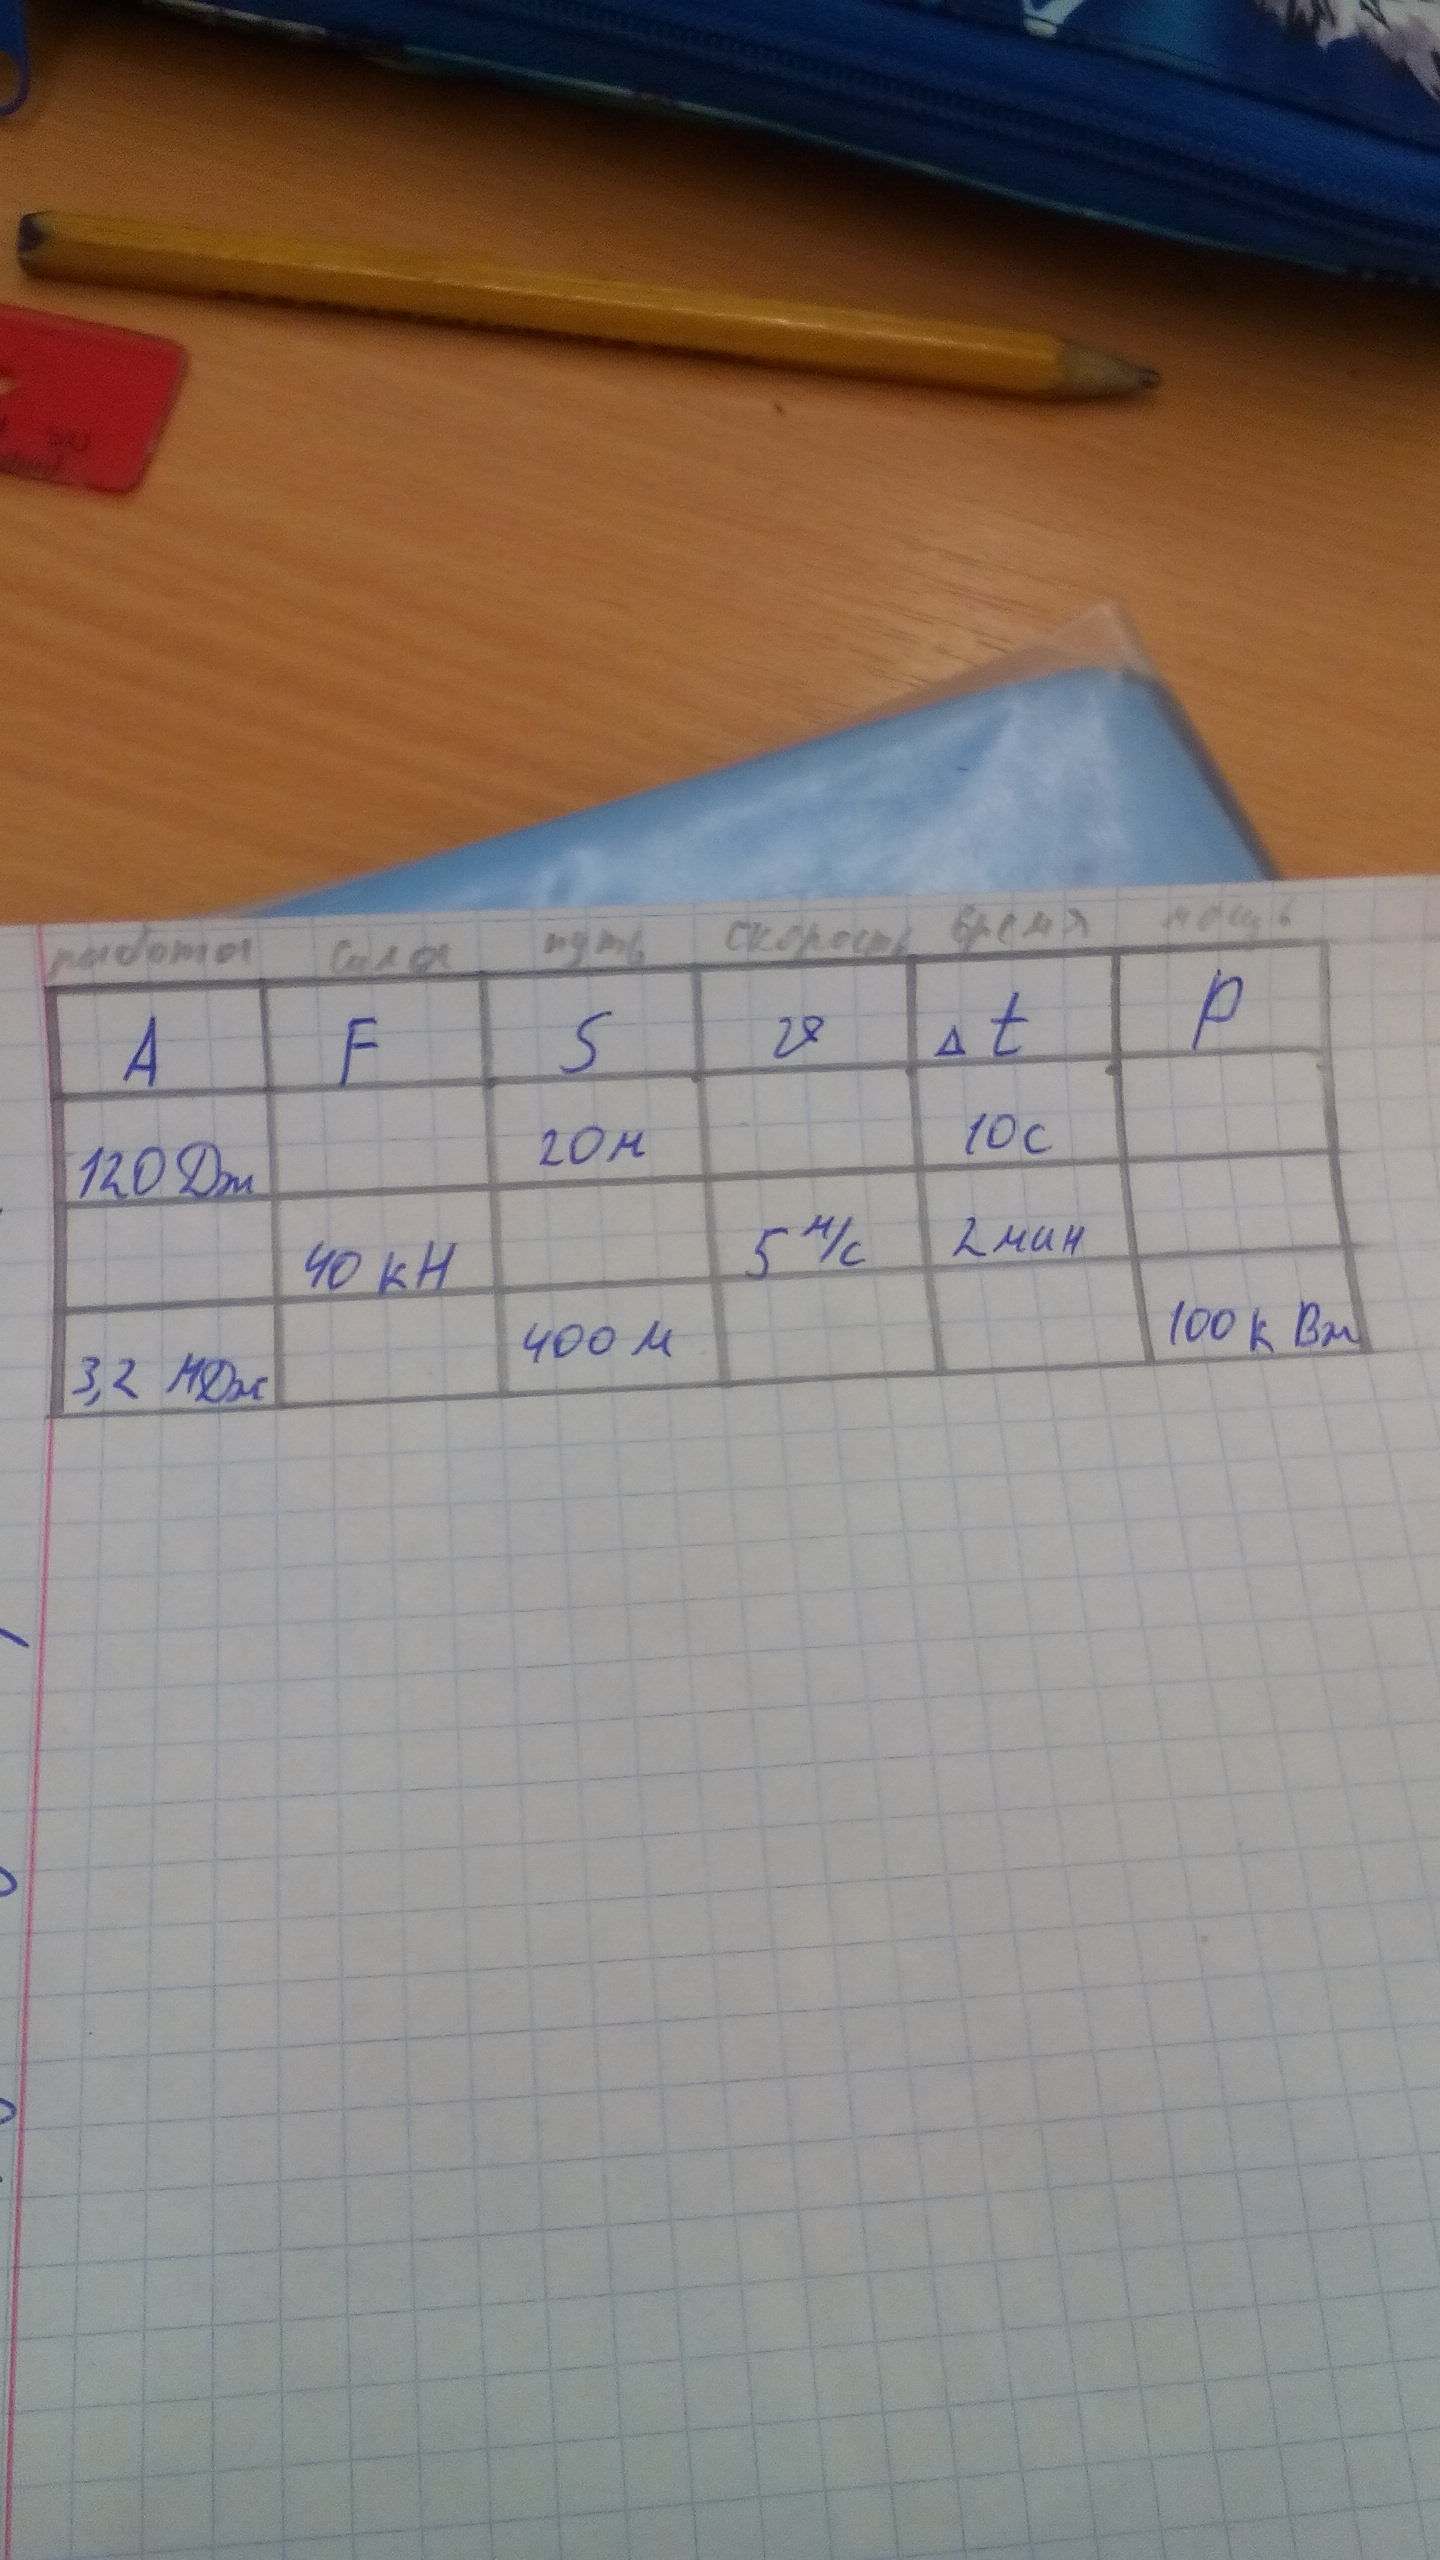 работа сила путь скорость время мощь
A F S υ Δt P
120 Дж 20 м 10 с
40 кН 5 м/с 2 мин
3,2 МДж 400 м 100 к Вт